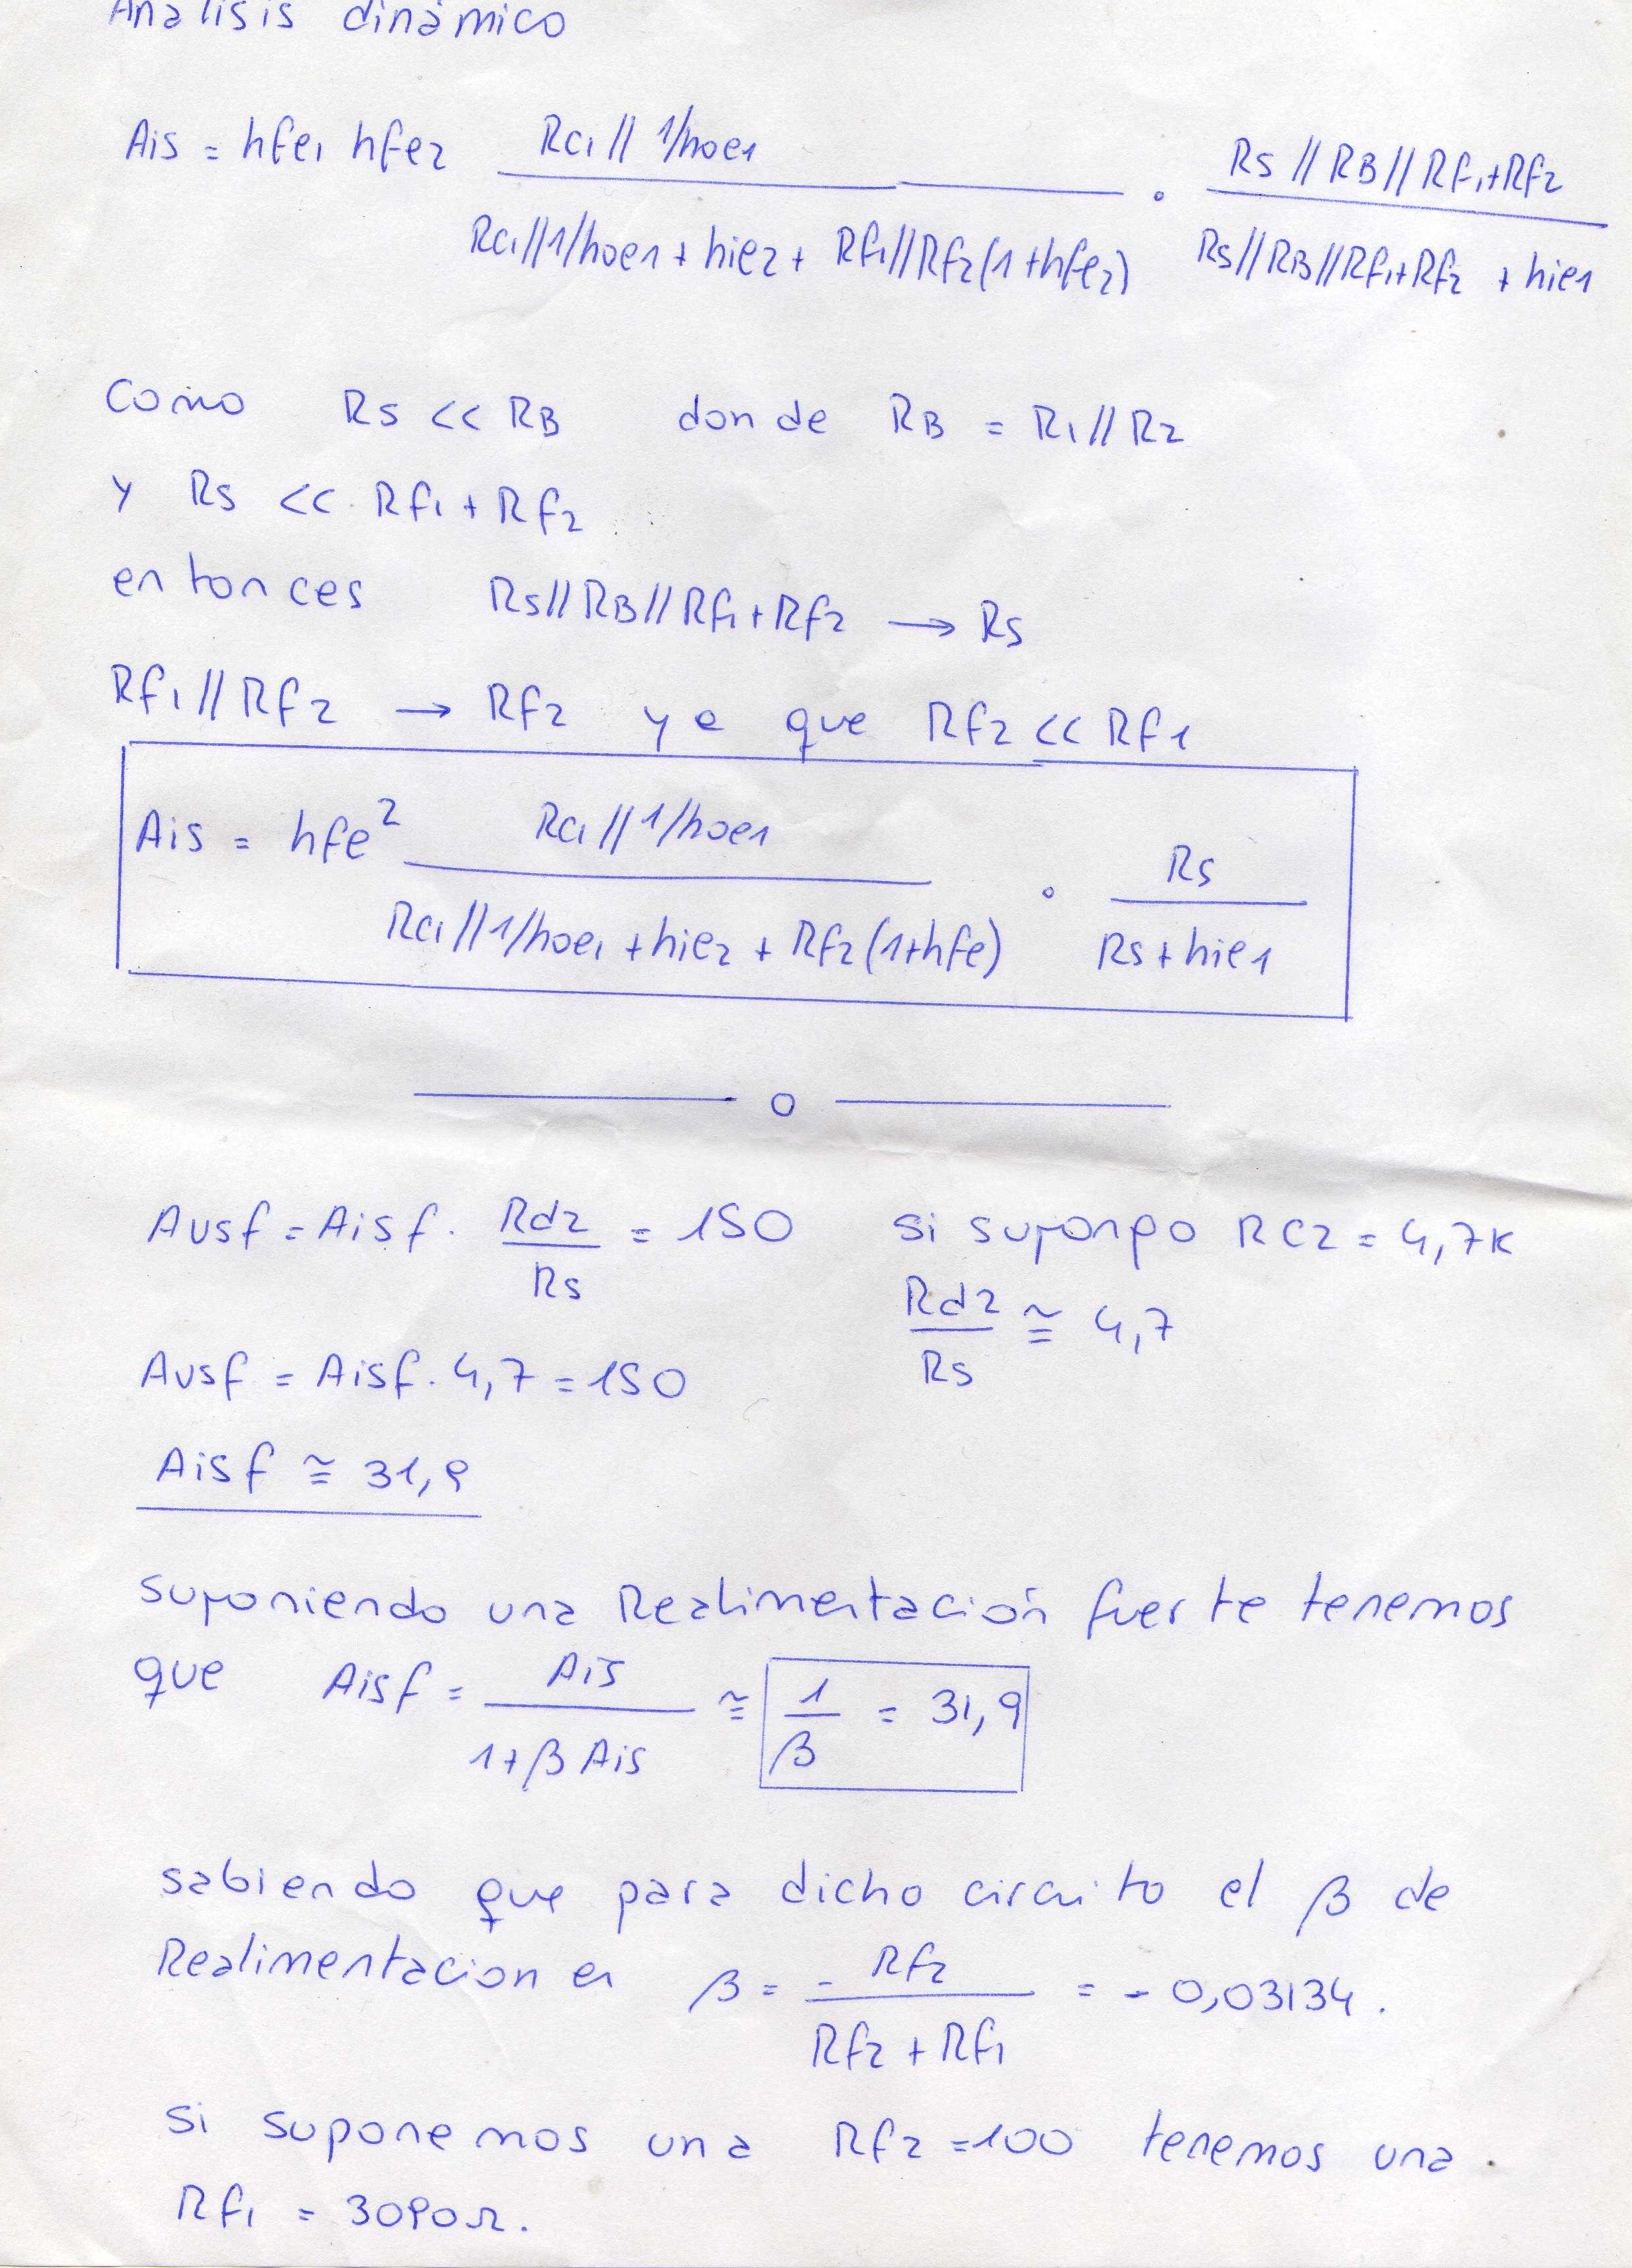 Analisis dinámico
Ais = hfe1 hfe2 Rc1 // 1/hoe1 / Rc1//1/hoe1 + hie2 + Rf1//Rf2(1+hfe2) · Rs // RB // Rf1+Rf2 / Rs//RB//Rf1+Rf2 + hie1
Como Rs << RB donde RB = R1//R2
y Rs << Rf1 + Rf2
entonces Rs//RB//Rf1+Rf2 → Rs
Rf1//Rf2 → Rf2 ya que Rf2 << Rf1
Ais = hfe² Rc1//1/hoe1 / Rc1//1/hoe1 + hie2 + Rf2(1+hfe) · Rs / Rs + hie1
o
Avsf = Aisf · Rd2 / Rs = 150 si supongo RC2 = 4,7K
Rd2 / Rs ≅ 4,7
Avsf = Aisf · 4,7 = 150
Aisf ≅ 31,9
suponiendo una Realimentación fuerte tenemos
que Aisf = Ais / 1+β Ais ≅ 1 / β = 31,9
sabiendo que para dicho circuito el β de
Realimentacion es β = - Rf2 / Rf2 + Rf1 = - 0,03134.
si suponemos una Rf2 = 100 tenemos una
Rf1 = 3090Ω.